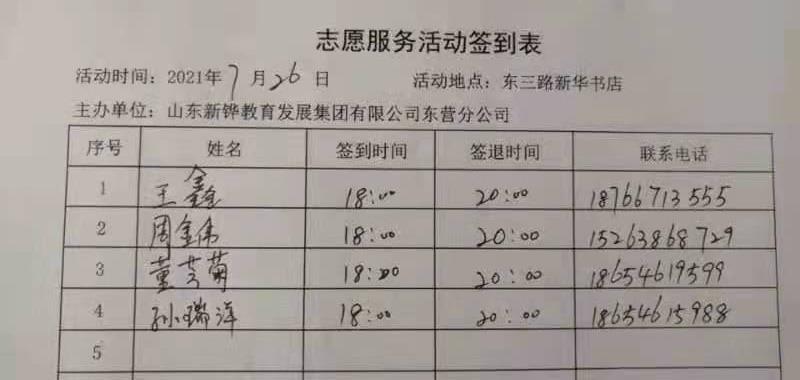 志愿服务活动签到表
活动时间：2021年7月26日 活动地点：东三路新华书店
主办单位：山东新铧教育发展集团有限公司东营分公司
序号 姓名 签到时间 签退时间 联系电话
1 王鑫 18:00 20:00 18766713555
2 周金伟 18:00 20:00 15263868729
3 董芳菊 18:00 20:00 18654619599
4 孙瑞洋 18:00 20:00 18654615988
5